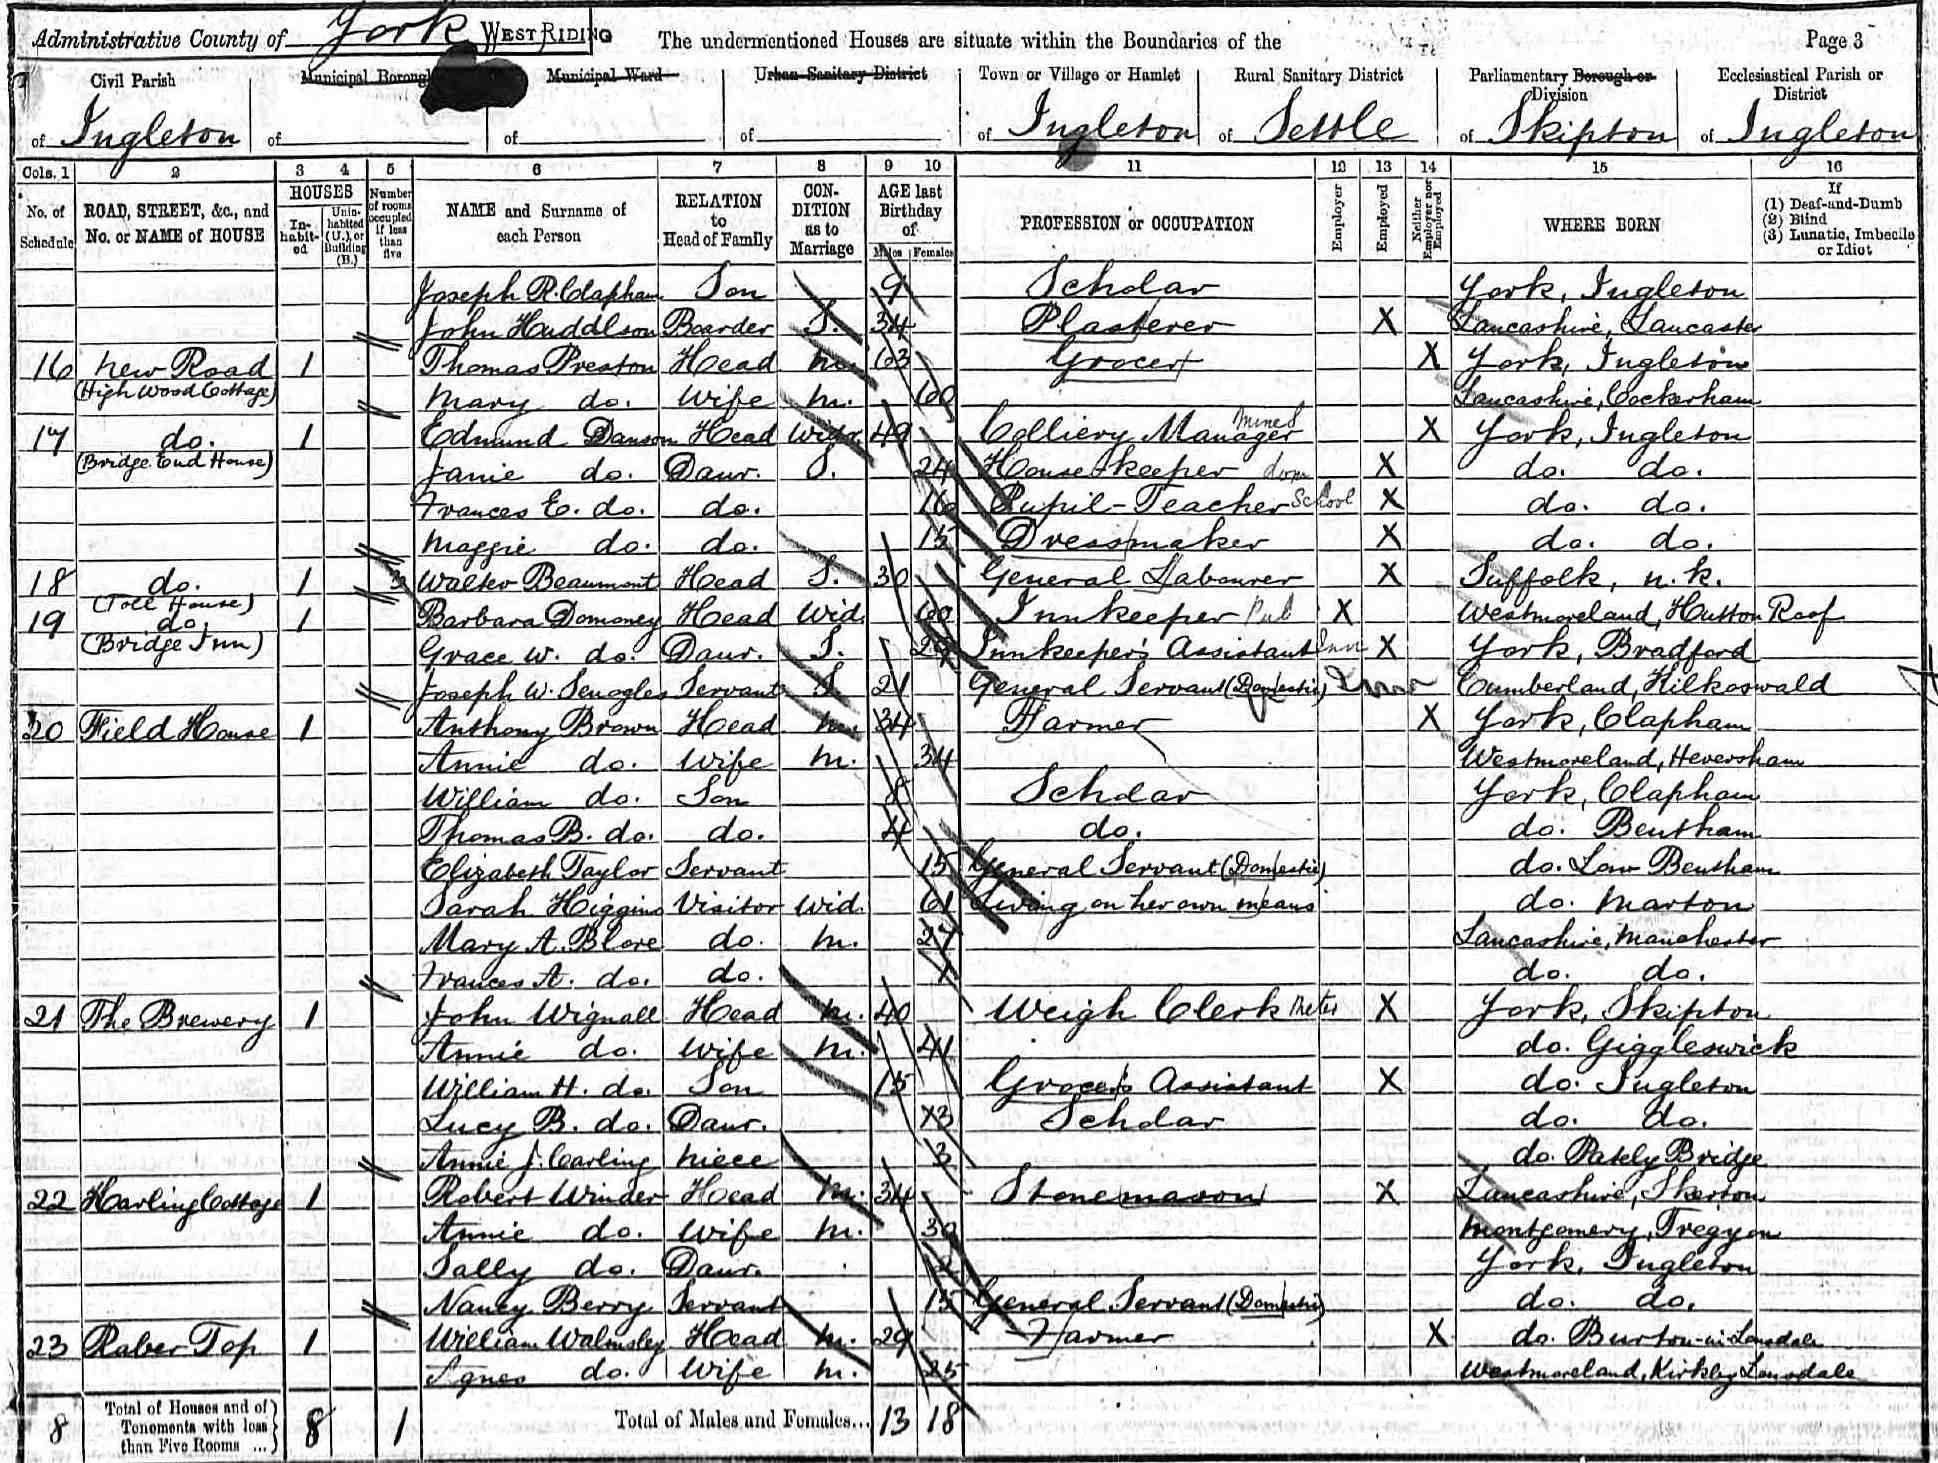 Administrative County of York WEST RIDING The undermentioned Houses are situate within the Boundaries of the Page 3
Civil Parish of Ingleton
Municipal Borough of
Municipal Ward of
Urban Sanitary District of
Town or Village or Hamlet of Ingleton
Rural Sanitary District of Settle
Parliamentary Borough or Division of Skipton
Ecclesiastical Parish or District of Ingleton
Cols. 1 2 3 4 5 6 7 8 9 10 11 12 13 14 15 16
No. of Schedule
ROAD, STREET, &c., and No. or NAME of HOUSE
HOUSES
In-habit-ed
Unin-habited (U.), or Building (B.)
Number of rooms occupied if less than five
NAME and Surname of each Person
RELATION to Head of Family
CON-DITION as to Marriage
AGE last Birthday of
Males Females
PROFESSION or OCCUPATION
Employer
Employed
Neither Employer nor Employed
WHERE BORN
If (1) Deaf-and-Dumb (2) Blind (3) Lunatic, Imbecile or Idiot
Joseph R. Clapham Son 9 Scholar York, Ingleton
John Huddlson Boarder S. 34 Plasterer X Lancashire, Lancaster
16 New Road 1 Thomas Preston Head M. 63 Grocer X York, Ingleton
(High Wood Cottage) Mary do. Wife M. 60 Lancashire, Cockerham
17 do. 1 Edmund Danson Head Widr. 49 Colliery Manager Mines X York, Ingleton
(Bridge End House) Janie do. Daur. S. 24 House-keeper dom X do. do.
Frances E. do. do. 16 Pupil-Teacher School X do. do.
Maggie do. do. 15 Dressmaker X do. do.
18 do. 1 3 Walter Beaumont Head S. 30 General Labourer X Suffolk, n.k.
(Toll House)
19 do. 1 Barbara Domoney Head Wid. 60 Innkeeper Pub X Westmoreland, Hutton Roof
(Bridge Inn) Grace W. do. Daur. S. 29 Innkeeper's Assistant Inn X York, Bradford
Joseph W. Servant S. 21 General Servant (Domestic) Inn Cumberland,
20 Field House 1 Anthony Brown Head M. 34 Farmer X York, Clapham
Annie do. Wife M. 34 Westmoreland, Heversham
William do. Son 8 Scholar York, Clapham
Thomas B. do. do. 4 do. do. Bentham
Elizabeth Taylor Servant 15 General Servant (Domestic) do. Low Bentham
Sarah Higgins Visitor Wid. 61 Living on her own means do. Marton
Mary A. Blore do. M. 27 Lancashire, Manchester
Frances A. do. do. 1 do. do.
21 The Brewery 1 John Wignall Head M. 40 Weigh Clerk X York, Skipton
Annie do. Wife M. 41 do. Giggleswick
William H. do. Son 15 Grocer's Assistant X do. Ingleton
Lucy B. do. Daur. 13 Scholar do. do.
Annie J. Carling Niece 3 do. Pately Bridge
22 Harling Cottage 1 Robert Winder Head M. 34 Stonemason X Lancashire, Skerton
Annie do. Wife M. 30 Montgomery, Tregynon
Sally do. Daur. 2 York, Ingleton
Nancy Berry Servant 15 General Servant (Domestic) do. do.
23 Raber Top 1 William Walmsley Head M. 29 Farmer X do. Burton-in-Lonsdale
Agnes do. Wife M. 25 Westmoreland, Kirkby Lonsdale
8 Total of Houses and of Tenements with less than Five Rooms ... 8 1 Total of Males and Females... 13 18